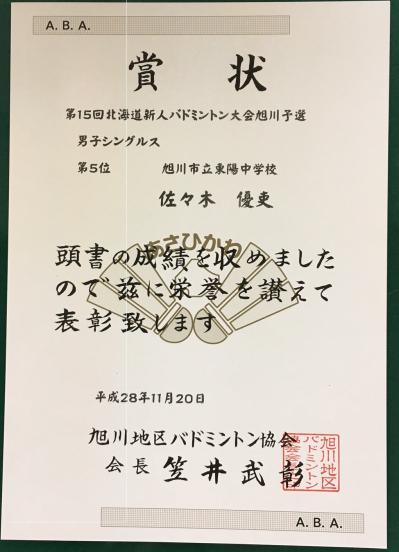 A. B. A.
賞状
第15回北海道新人バドミントン大会旭川予選
男子シングルス
第5位 旭川市立東陽中学校
佐々木 優吏
あさひかわ
頭書の成績を収めました
ので茲に栄誉を讃えて
表彰致します
平成28年11月20日
旭川地区バドミントン協会
会長 笠井武彰
旭川地区
バドミントン
A. B. A.